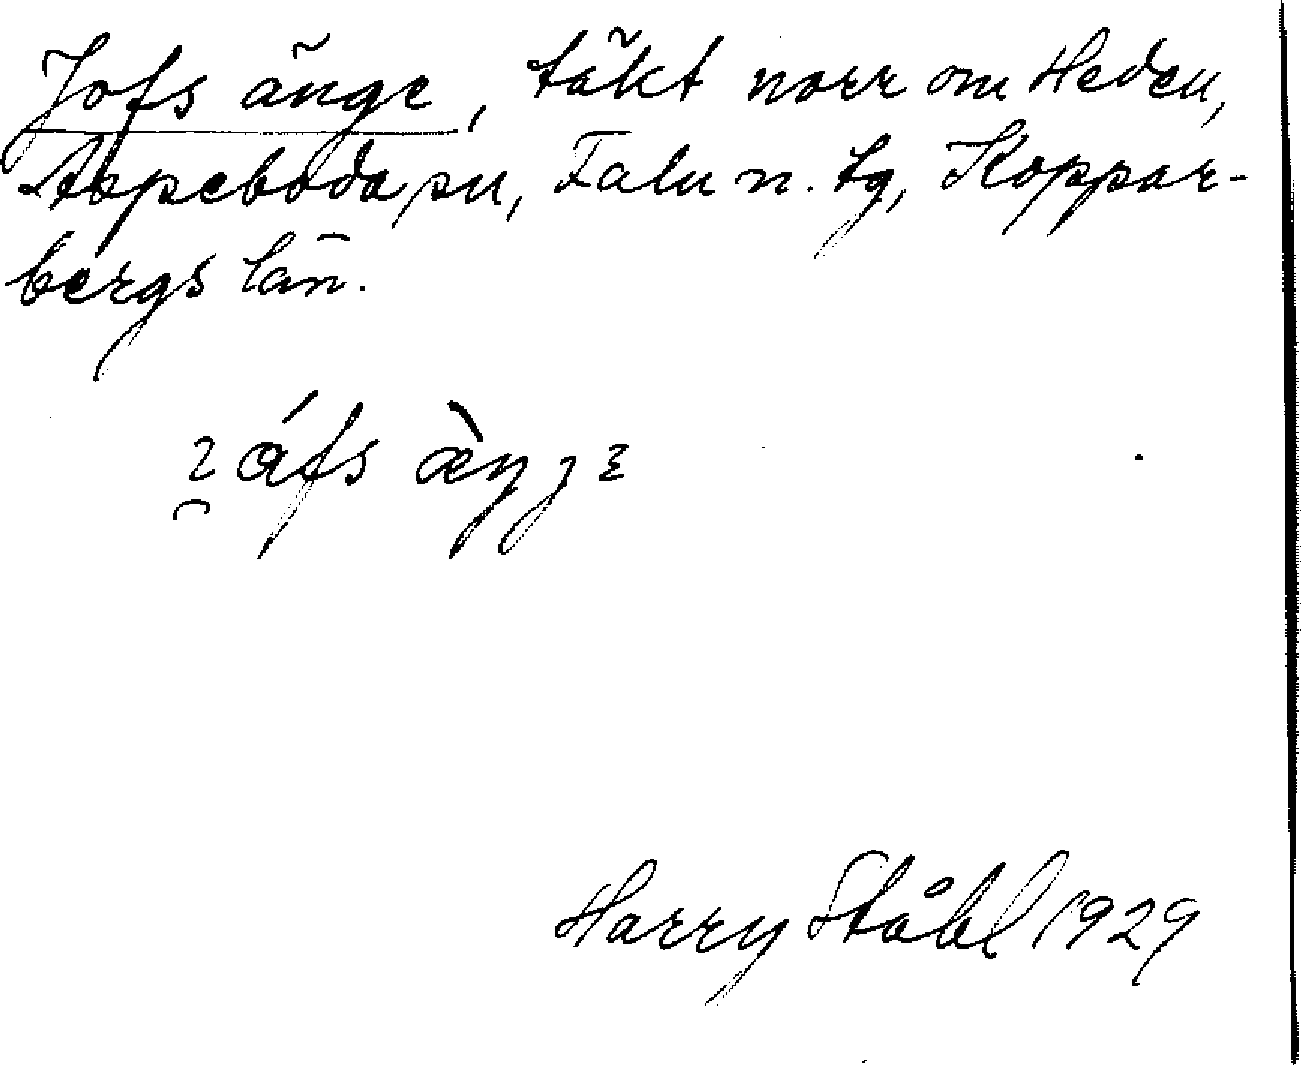 Jofs änge, täkt norr om Heden,
Aspeboda sn, Falu n. tg, Koppar-
bergs län.
Harry Ståhl 1929